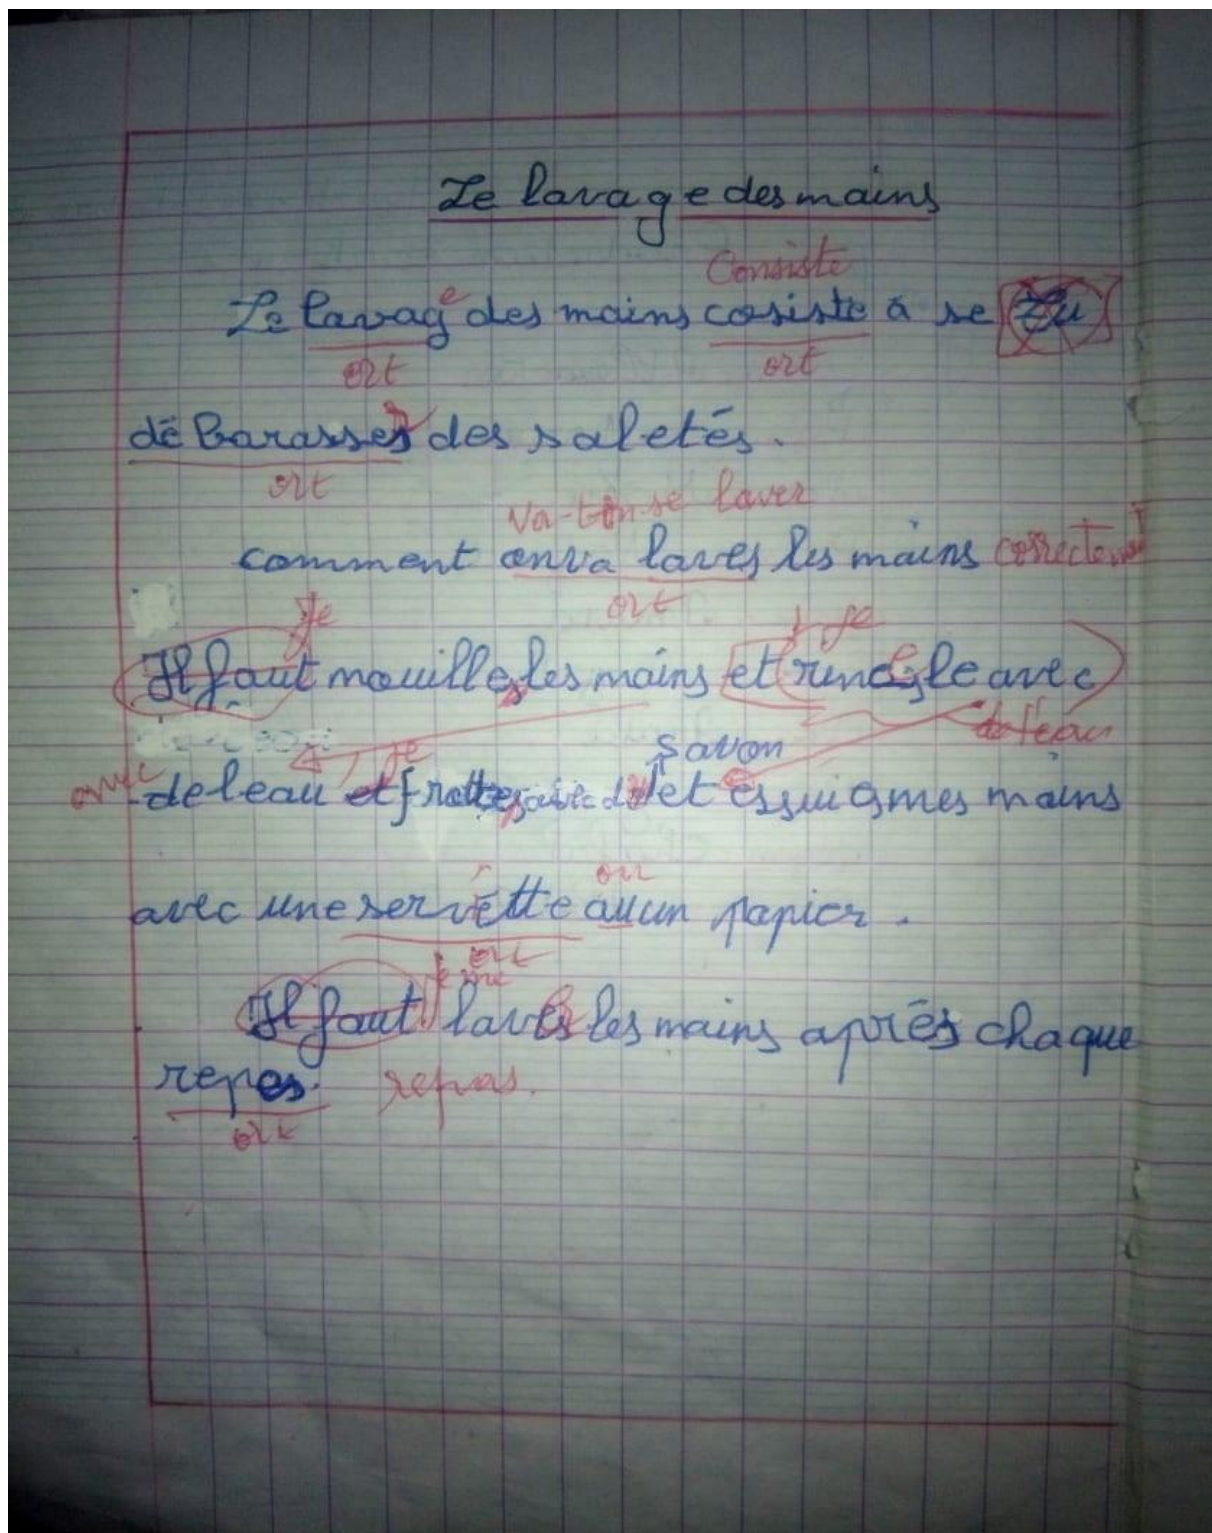 Le lavage des mains
Consiste
Le lavag e des mains cosiste à se
ort ort
débarasser des saletés.
ort
va-t-on se laver
comment onva laves les mains correctement
ort
je je
Il faut mouilles les mains et rinces le avec
de l'eau
je savon
avec de leau et frottes avec du et essui mes mains
ou
avec une serviette auun papier.
ort
je me
Il faut laves les mains après chaque
repos. repas.
ort